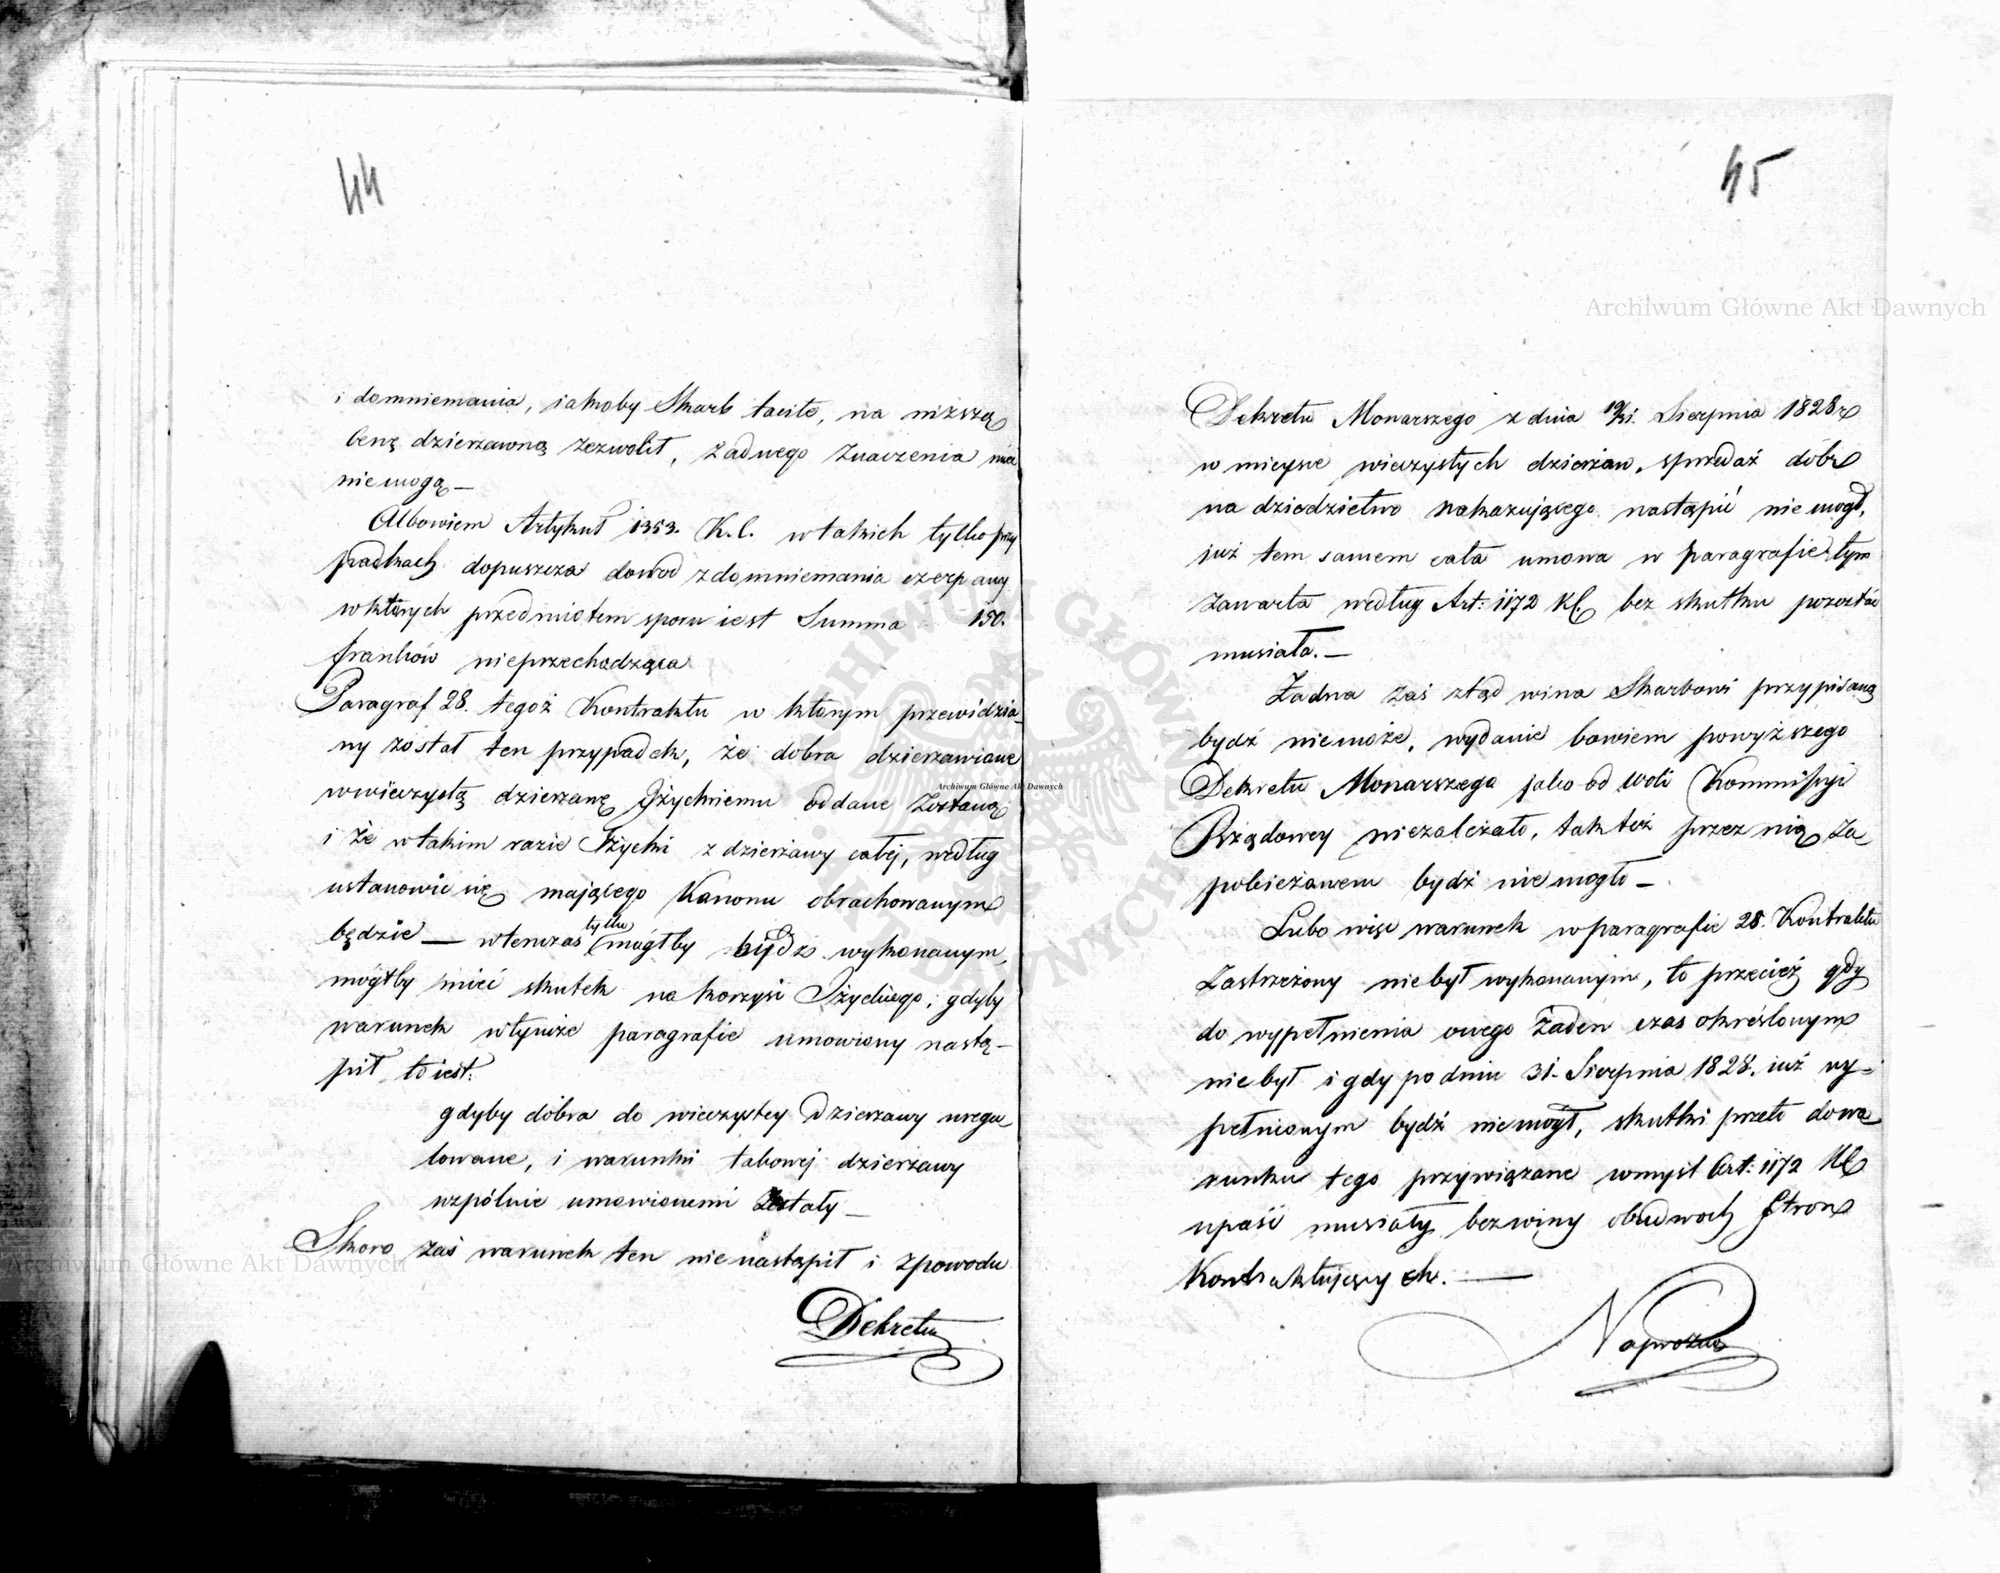 44
i domniemania, iakoby Skarb tacite, na niższą
cenę dzierżawną zezwolił, żadnego znaczenia mieć
niemogą —
Albowiem Artykuł 1353. K.C. wtakich tylko przy
padkach dopuszcza dowod zdomniemania czerpany
wktórych przedmiotem sporu iest Summa 150.
franków nieprzechodząca
Paragraf 28. tegoż Kontraktu w którym przewidzia
ny został ten przypadek, że dobra dzierżawione
wwieczystą dzierżawę Iżyckiemu oddane zostaną
i że wtakim razie Iżycki z dzierżawy całej, według
ustanowić się mającego Kanonu obrachowanym
będzie — wtenczas tylko mógłby bydź wykonanym,
mógłby mieć skutek na korzyść Iżyckiego, gdyby
warunek wtymże paragrafie umowiony nastą-
pił to iest:
gdyby dobra do wieczystey Dzierżawy uregu
lowane, i warunki takowej dzierżawy
wspólnie umowionemi zostały —
Skoro zaś warunek ten nie nastąpił i zpowodu
Dekretu
45
Dekretu Monarszego z dnia 19/31. Sierpnia 1828r
w mieysce wieczystych dzierżaw, sprzedaż dóbr
na dziedzictwo nakazującego nastąpić nie mogł,
już tem samem cała umowa w paragrafie tym
zawarta według Art: 1172 KC bez skutku pozostać
musiała. —
Żadna zaś ztąd wina Skarbowi przypisaną
bydź niemoże, wydanie bowiem powyższego
Dekretu Monarszego jako od woli Kommissyi
Rządowey niezależało, tak też przez nią za
pobieżanem bydź niemogło —
Lubo więc warunek wparagrafie 28. Kontraktu
Zastrzeżony niebył wykonanym, to przecież gdy
do wypełnienia onego żaden czas określonym
niebył i gdy po dniu 31. Sierpnia 1828. już wy-
pełnionym bydź niemógł, skutki przeto do wa
runku tego przywiązane wmyśl Art: 1172 KC
upaść musiały bezwiny obudwoch Stron
Kontraktujących. —
Naprozno
Archiwum Główne Akt Dawnych
Archiwum Główne Akt Dawnych
Archiwum Główne Akt Dawnych
ARCHIWUM GŁÓWNE AKT DAWNYCH